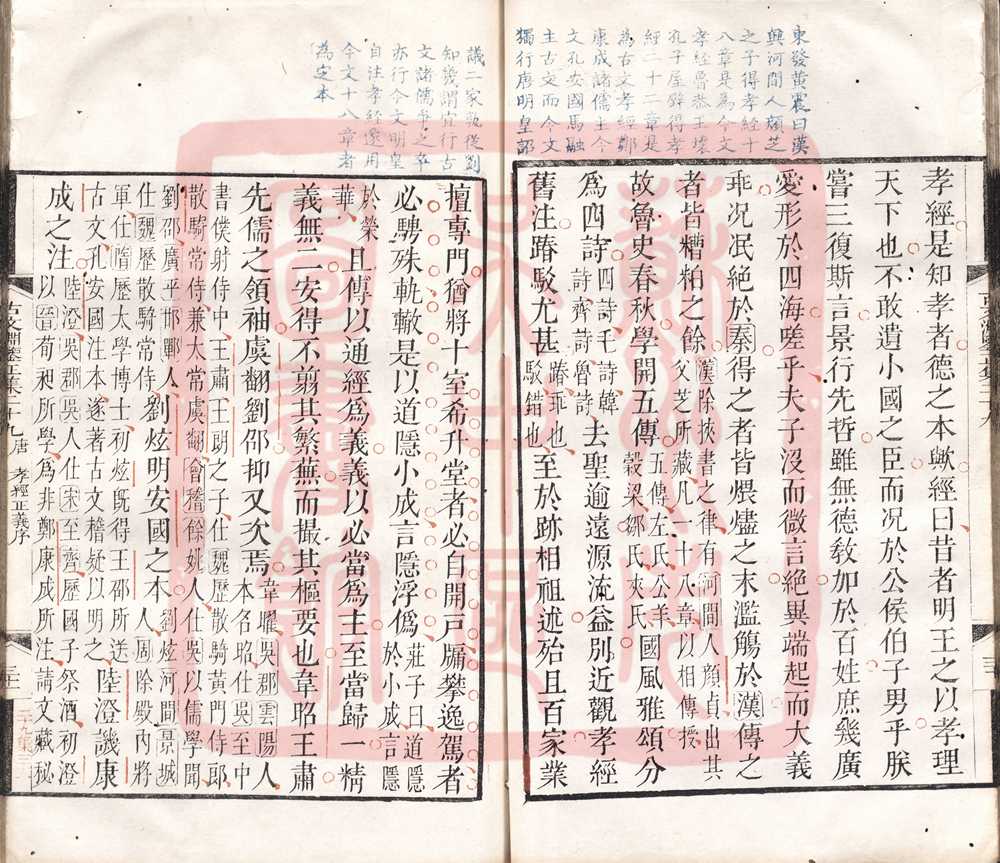 東發黃震曰漢
興河間人顏芝
之子得孝經十
八章是爲今文
孝經魯恭王壞
孔子屋壁得孝
經二十二章是
為古文孝經鄭
康成諸儒主今
文孔安國馬融
主古文而今文
獨行唐明皇詔
孝經是知孝者德之本歟經曰昔者明王之以孝理
天下也不敢遺小國之臣而况於公侯伯子男乎朕
嘗三復斯言景行先哲雖無德教加於百姓庶幾廣
愛形於四海嗟乎夫子沒而微言絕異端起而大義
乖况泯絕於秦得之者皆煨燼之末濫觴於漢傳之
者皆糟粕之餘漢除挾書之律有河間人顏貞出其
父芝所藏凡一十八章以相傳授
故魯史春秋學開五傳五傳左氏公羊
穀梁鄒氏夾氏國風雅頌分
爲四詩四詩毛詩韓
詩齊詩魯詩去聖逾遠源流益別近觀孝經
舊注踳駁尤甚踳乖也
駁錯也至於跡相祖述殆且百家業
議二家孰從劉
知幾謂宜行古
文諸儒爭之卒
亦行今文明皇
自注孝經遂用
今文十八章者
為定本
擅專門猶將十室希升堂者必自開戸牖攀逸駕者
必騁殊軌轍是以道隱小成言隱浮僞莊子曰道隱
於小成言隱
於榮
華且傳以通經爲義義以必當爲主至當歸一精
義無二安得不翦其繁蕪而撮其樞要也韋昭王肅
先儒之領袖虞翻劉邵抑又次焉韋曜吳郡雲陽人
本名昭仕吳至中
書僕射侍中王肅王朗之子仕魏歷散騎黃門侍郎
散騎常侍兼太常虞翻會稽餘姚人仕吳以儒學聞
劉邵廣平邯鄲人
仕魏歷散騎常侍劉炫明安國之本劉炫河間景城
人周除殿內將
軍仕隋歷太學博士初炫旣得王邵所送
古文孔安國注本遂著古文稽疑以明之陸澄譏康
成之注陸澄吳郡吳人仕宋至齊歷國子祭酒初澄
以晉荀昶所學爲非鄭康成所注請文藏秘
唐 孝經正義序